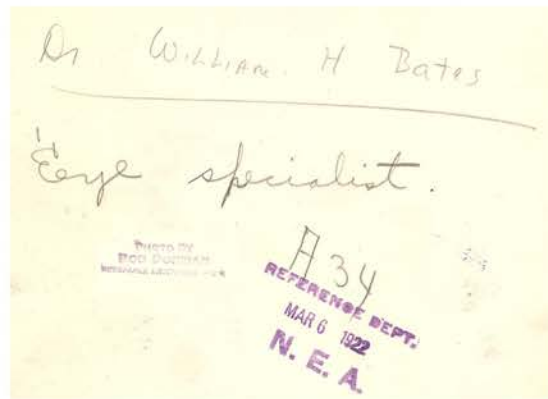 Dr William. H Bates
Eye specialist.
PHOTO BY
BOB DORMAN
A 34
REFERENCE DEPT.
MAR 6 1922
N. E. A.